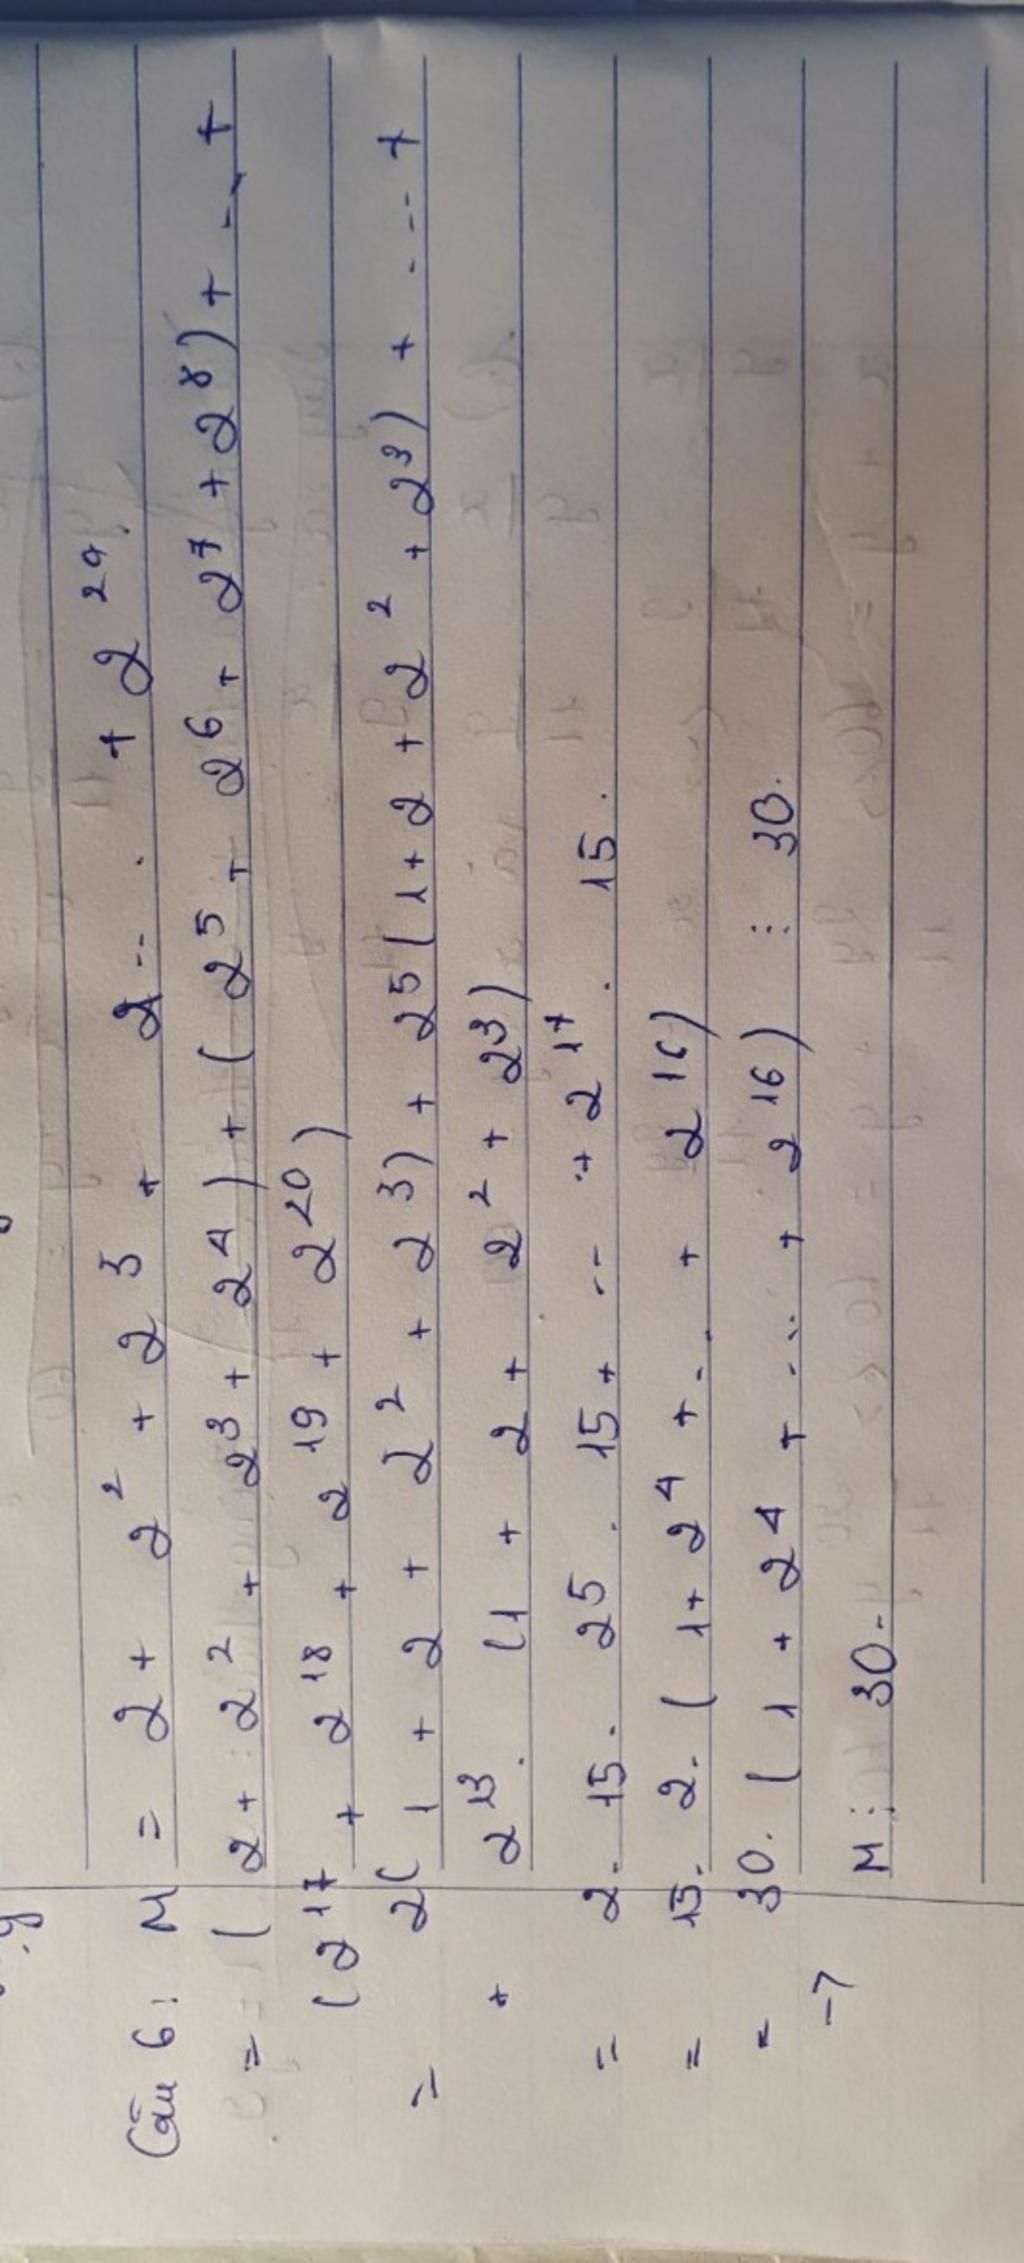 Câu 6: M = 2 + 2² + 2³ + 2 -- . + 2²⁹.
= (2 + 2² + 2³ + 2⁴) + (2⁵ + 2⁶ + 2⁷ + 2⁸) + -- +
(2¹⁷ + 2¹⁸ + 2¹⁹ + 2²⁰)
= 2(1 + 2 + 2² + 2³) + 2⁵(1 + 2 + 2² + 2³) + . -- +
+ 2¹³ . (1 + 2 + 2² + 2³)
= 2. 15. 25 . 15 + -- + 2¹⁷ . 15.
= 15. 2. (1 + 2⁴ + . . + 2¹⁶)
= 30. (1 + 2⁴ + ... + 2¹⁶) ⋮ 30.
→ M ⋮ 30.